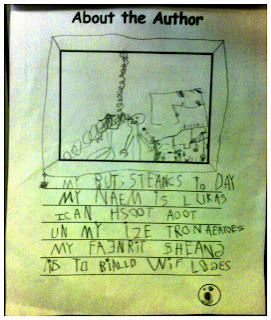 About the Author
MY BUTS STEANCS TO DAY
MY NAEM iS LUKAS
ICAN HSOOT AOOT
UN MY IZE TRONAEROES
MY FAENRIT SHEANG
iS TO BIALLD WiF LOGES